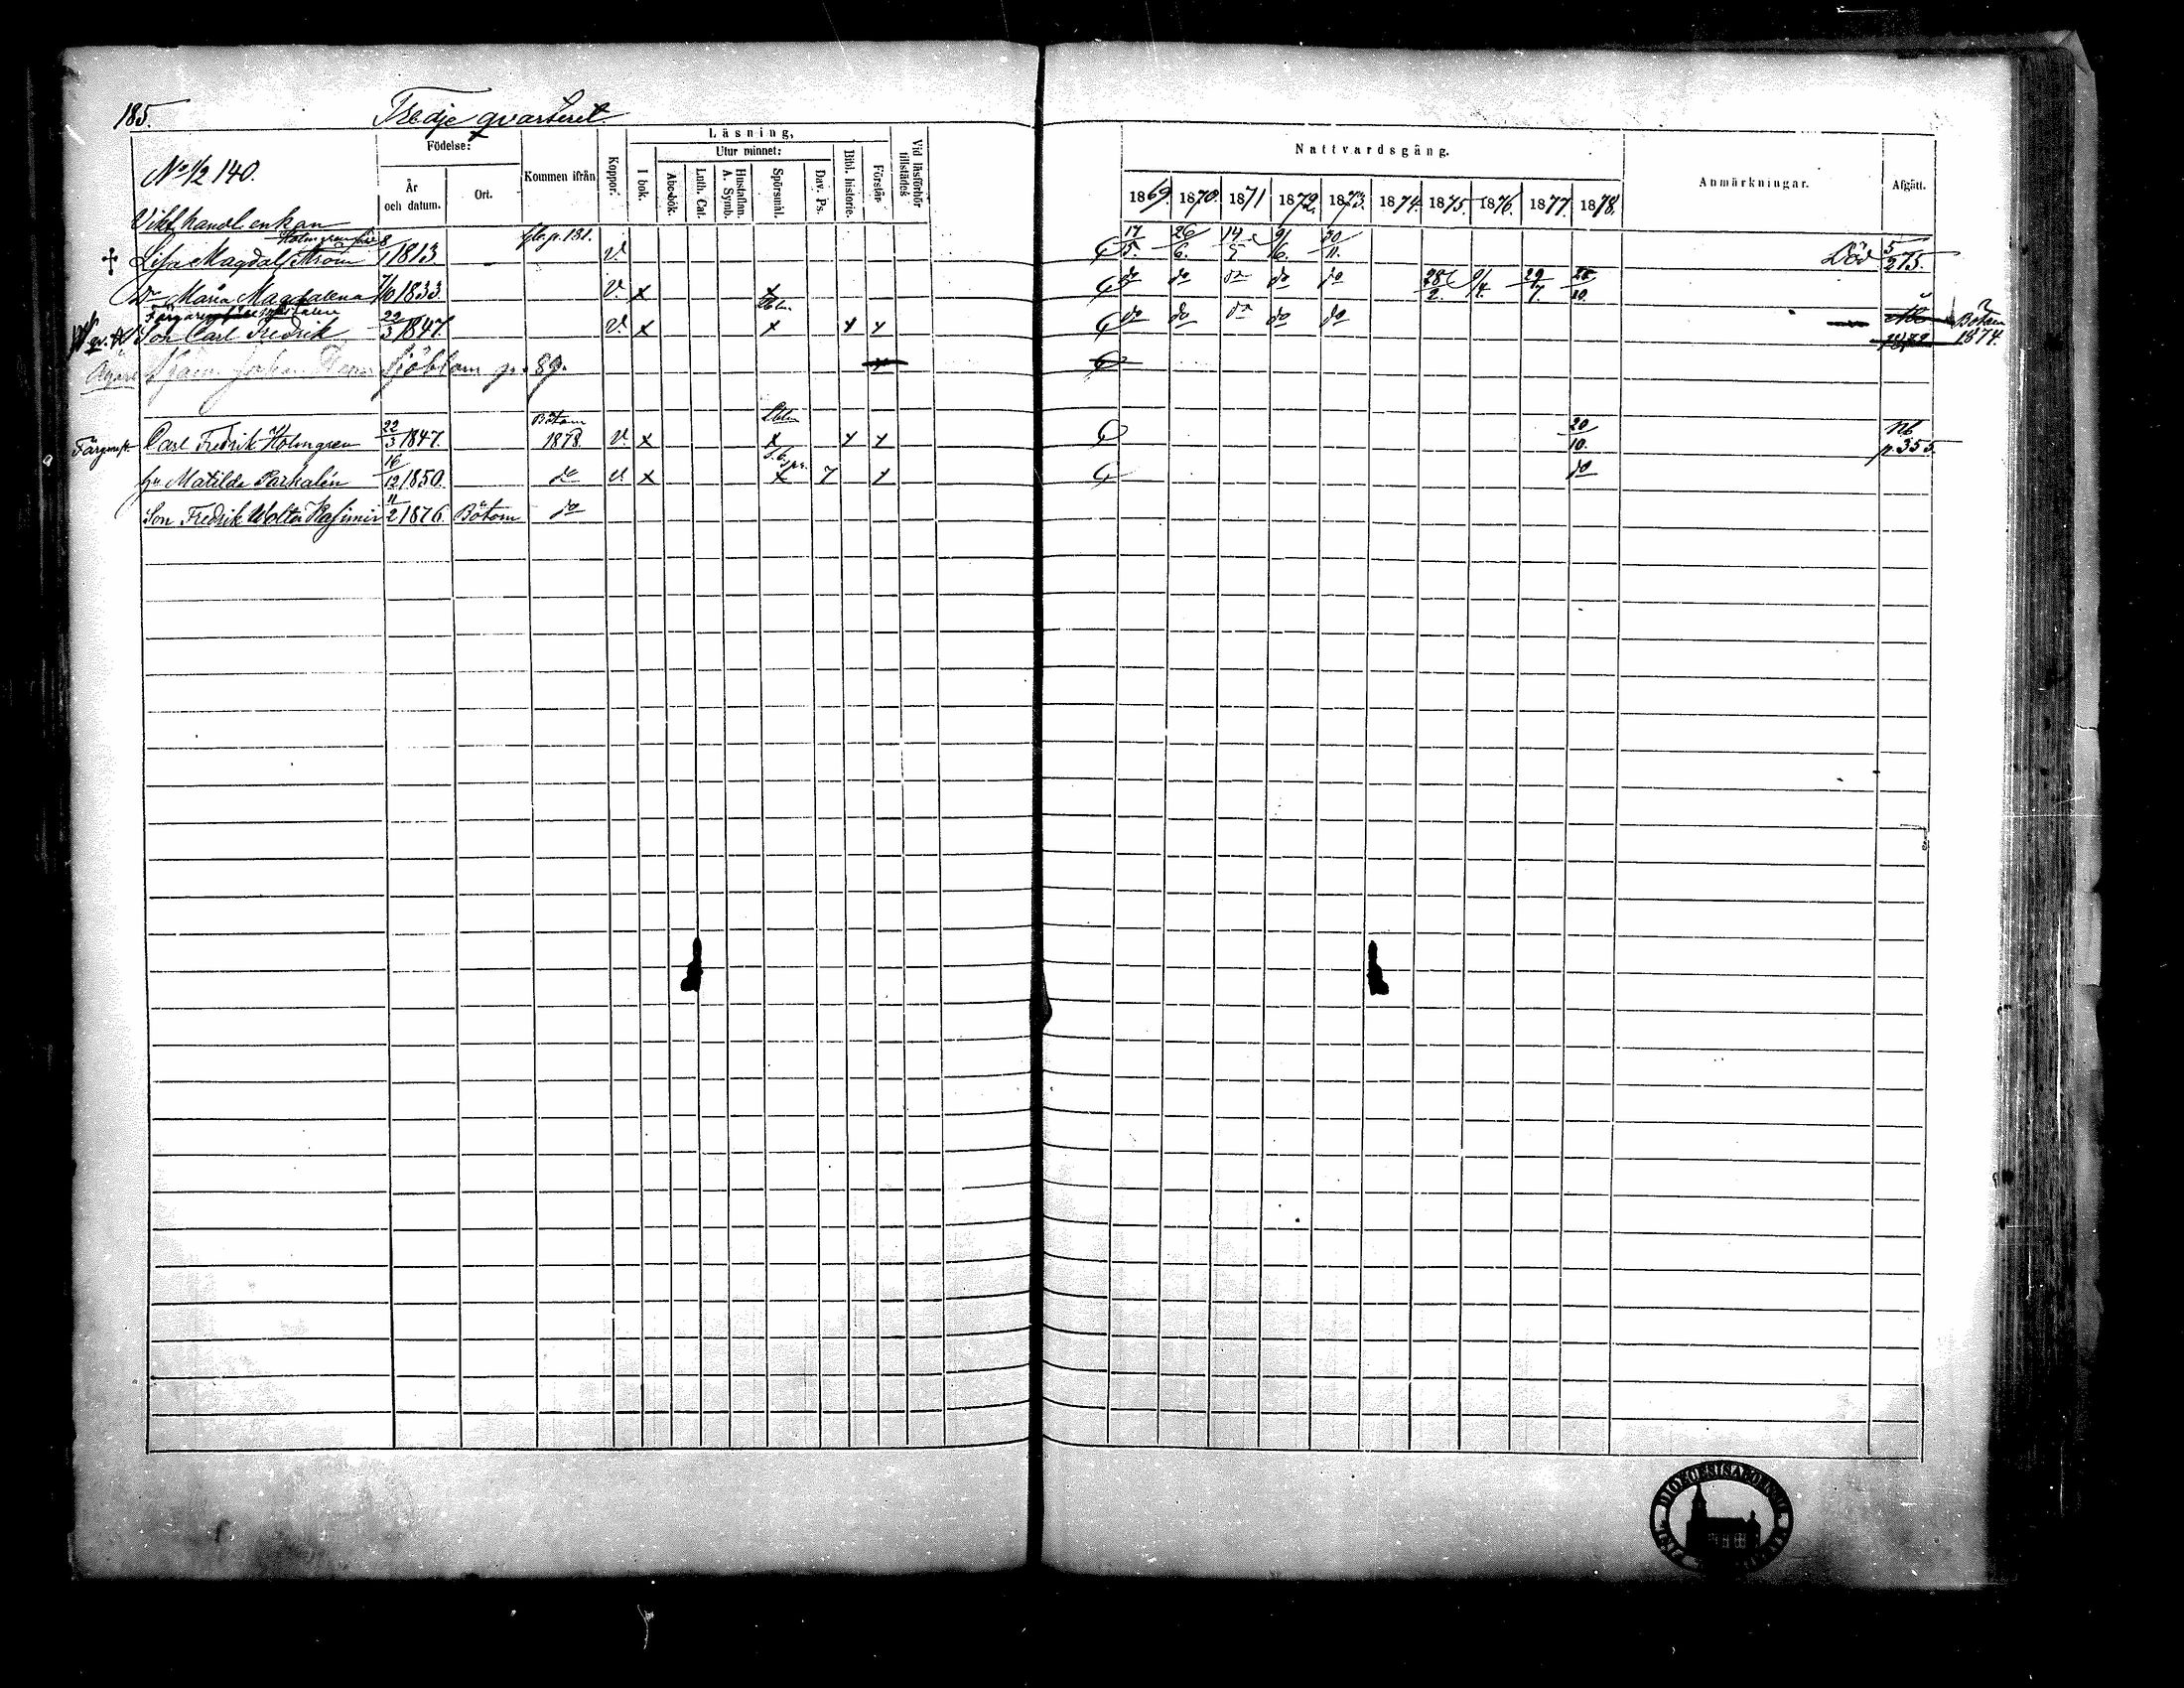 185. Tredje qvarteret.
Nº 1/2 140.
Födelse:
År och datum.
Ort.
Kommen ifrån
Koppor.
Läsning,
I bok.
Utur minnet:
Abcbok.
Luth. Cat.
Hustaflan. A. Symb.
Spörsmål.
Dav. Ps.
Bibl. historie.
Förstår
Vid läsförhör tillstädes
Nattvardsgång.
1869 1870. 1871 1872. 1873. 1874. 1875. 1876. 1877. 1878.
Anmärkningar.
Afgått.
Vikt.handl. enkan
Holmgren
Lisa Magdal. Ström 8/1 1813. p. 181. v. 17/5. 26/6. 14/5 9/6. 30/11. Död 5/2 75.
Dr Maria Magdalena 7/10 1833. v. x x do do do do do 28/2. 9/4. 29/7. 20/10.
Son Carl Fredrik 22/3 1847. v. x x x x do do do do do Bötom 1874.
Sjöblom p. 89.
Carl Fredrik Holmgren 22/3 1847. Bötom 1878. v. x x x x 20/10. p. 355.
Hu Matilda Parkalén 16/12 1850. do v. x x 7 x do
Son Fredrik Wolter Kasimir 11/2 1876. Bötom do